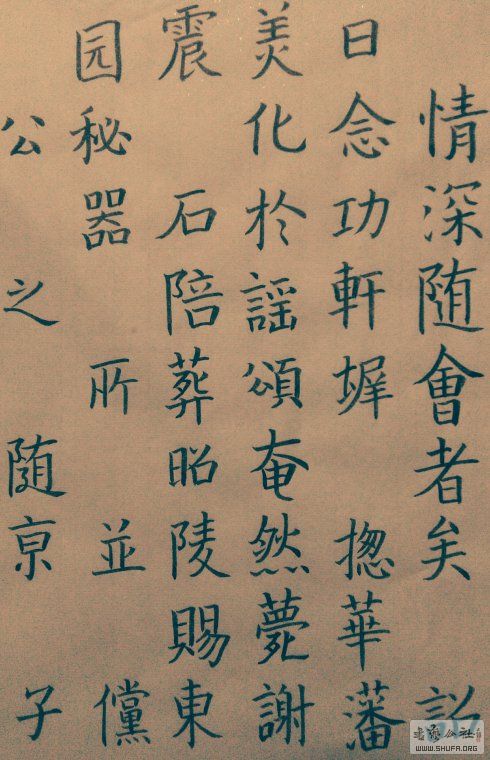 情深随會者矣
日念功軒墀 揔華藩
美化於謡頌奄然薨謝
震 石陪葬昭陵賜東
园秘器 所 並 儻
公 之 随京 子
WWW.SHUFA.ORG